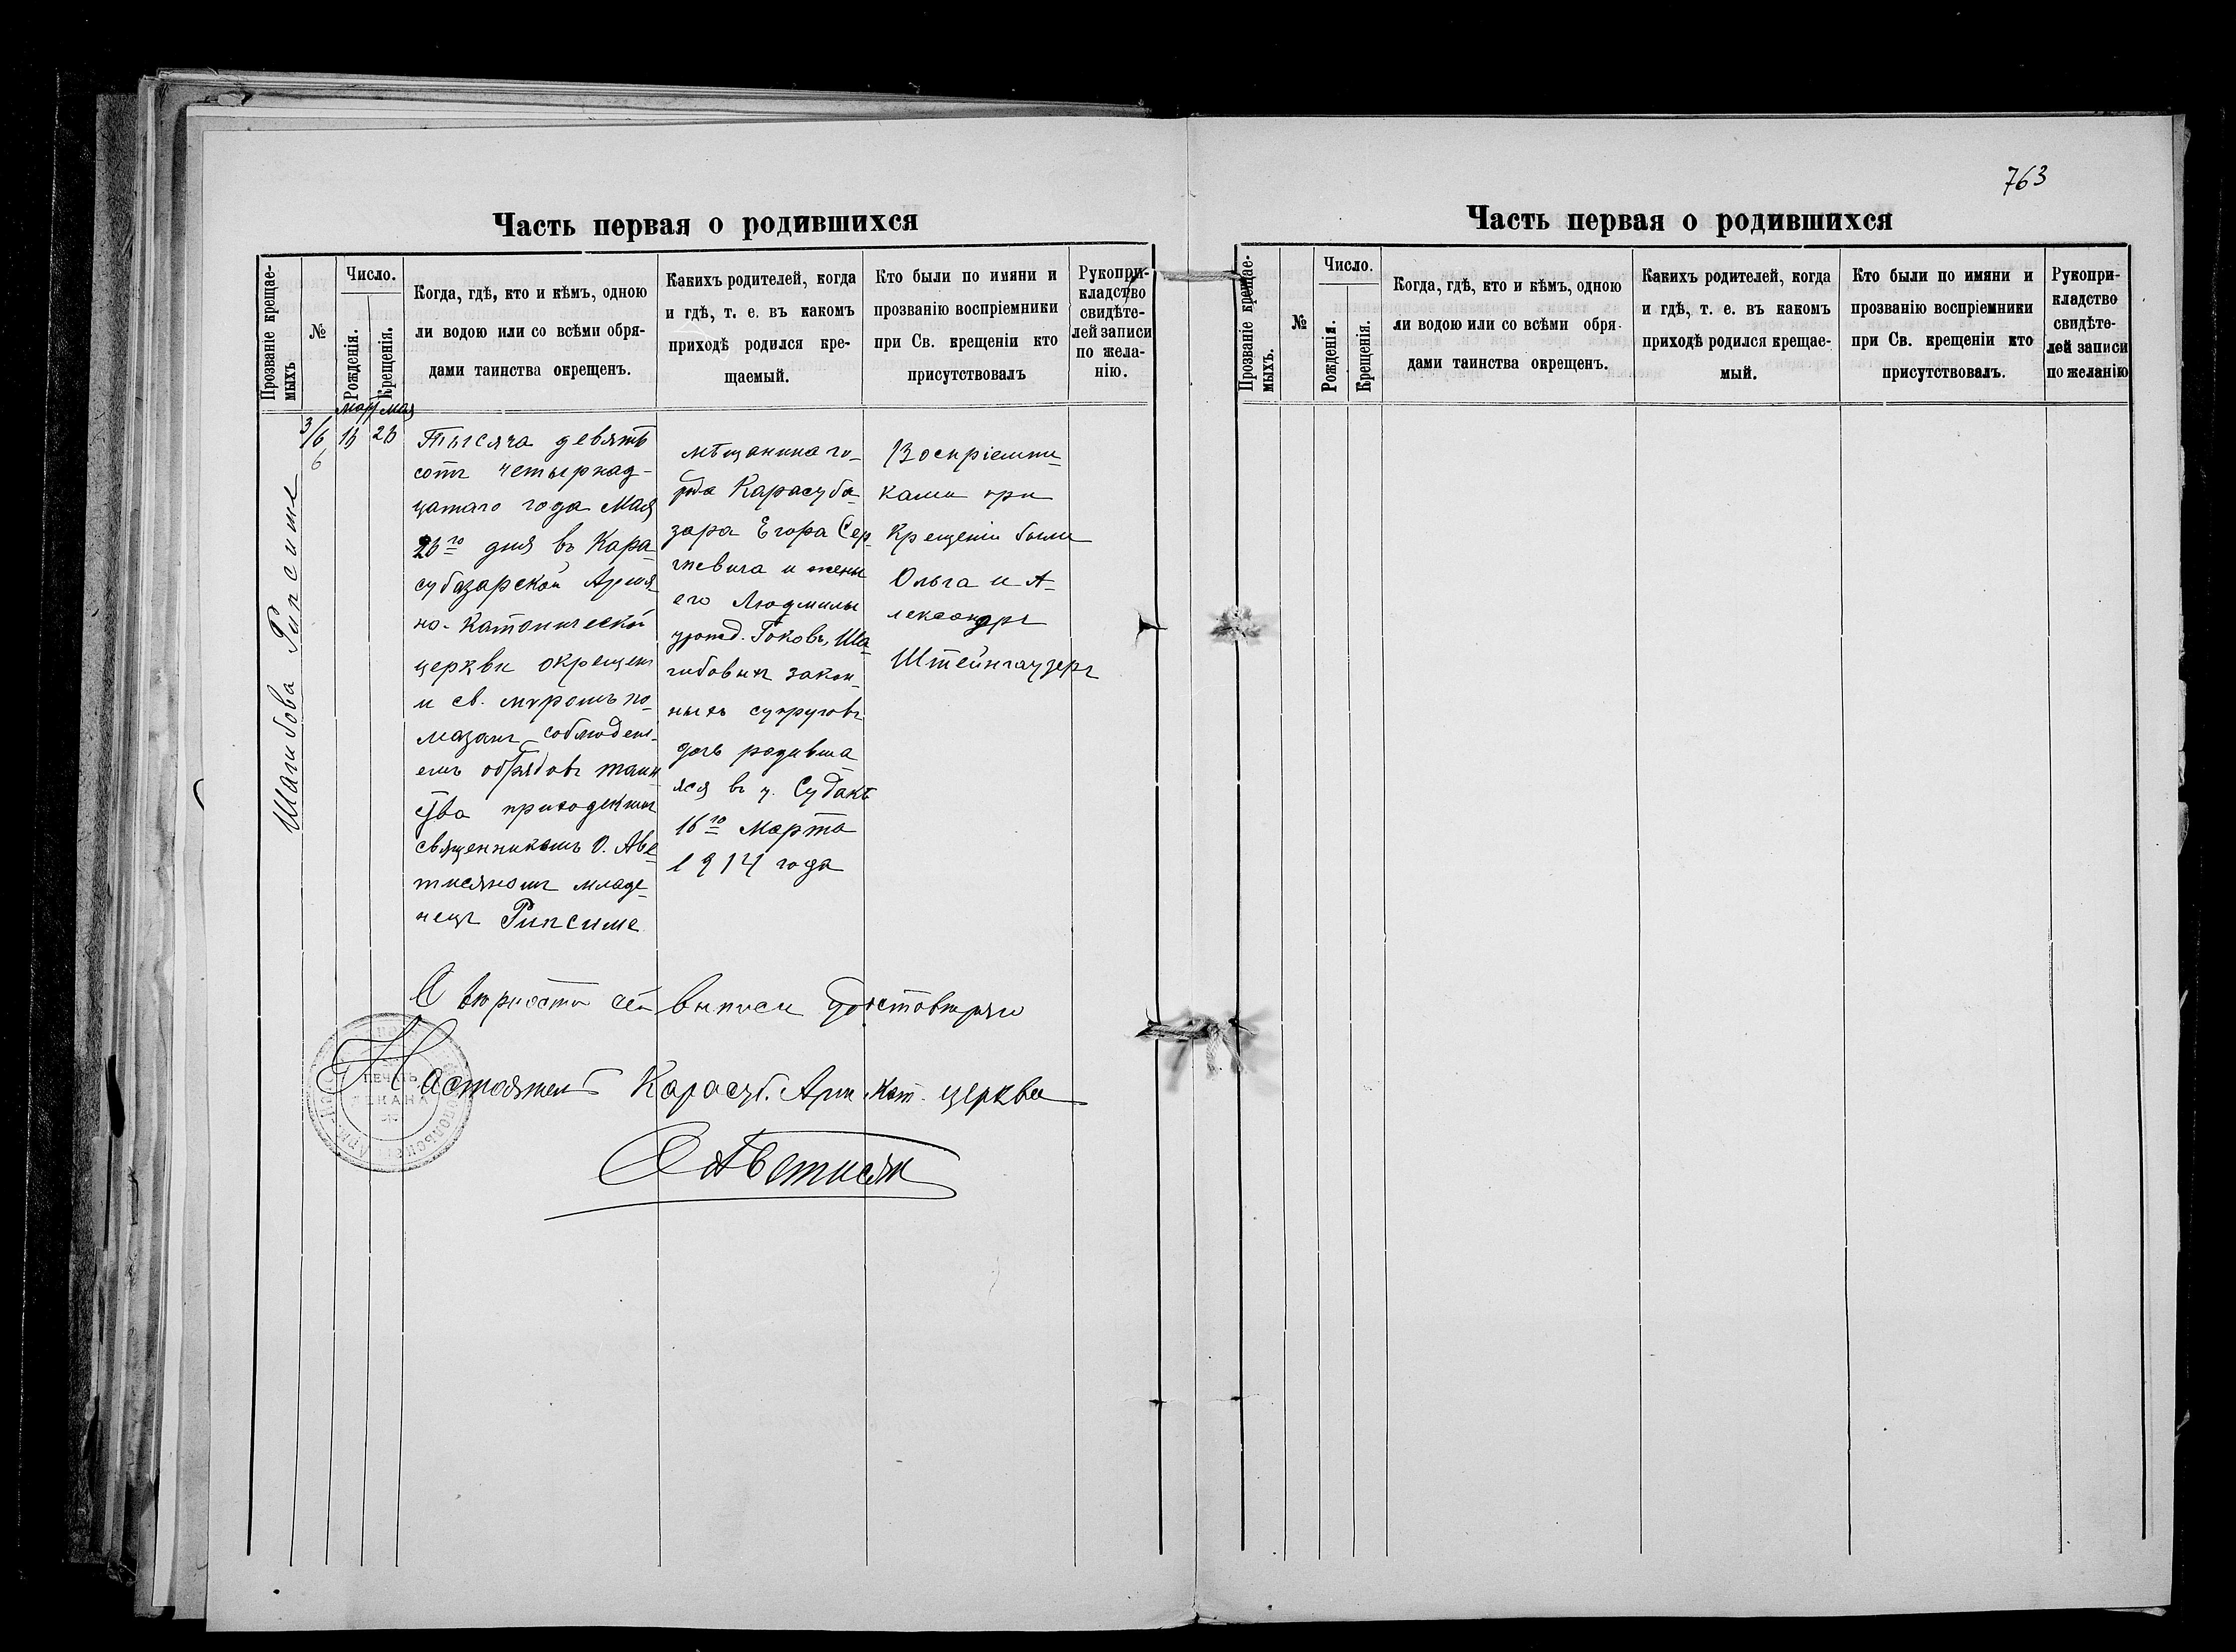 763
Часть первая о родившихся
Прозваніе крещае-
мыхъ
№
Число.
Рожденія.
Крещенія.
Когда, гдѣ, кто и кѣмъ, одною
ли водою или со всѣми обря-
дами таинства окрещенъ.
Какихъ родителей, когда
и гдѣ, т. е. въ какомъ
приходѣ родился кре-
щаемый.
Кто были по имяни и
прозванію воспріемники
при Св. крещеніи кто
присутствовалъ
Рукопри-
кладство
свидѣте-
лей записи
по жела-
нію.
Шагибова Рипсиме
3/6
6
мая
Тысяча девять
сотъ четырнад-
цатаго года Мая
26го дня въ Кара-
субазарской Армя-
но-Католической
церкви окрещенъ
и св. мvромъ по-
мазанъ соблюдені-
емъ обрядовъ таин
ства приходскимъ
священникомъ О. Аве-
тисяномъ младе-
нецъ Рипсиме
мѣщанина го-
рода Карасуба-
зара Егора Сер-
гѣевича и жены
его Людмилы
урожд. Гоковъ, Ша-
гибовыхъ закон-
ныхъ супруговъ
дочь родивша-
яся въ г. Судакѣ
16го Марта
1914 года
Воспріемни-
ками при
Крещеніи были
Ольга и А-
лександръ
Штейнгаузеръ
О вѣрности сей выписи удостовѣряю
Настоятель Карасуб. Арм. Кат. церкви
О Аветисян
ПЕЧАТЬ
ДЕКАНА
Часть первая о родившихся
Прозваніе крещае-
мыхъ.
№
Число.
Рожденія.
Крещенія.
Когда, гдѣ, кто и кѣмъ, одною
ли водою или со всѣми обря-
дами таинства окрещенъ.
Какихъ родителей, когда
и гдѣ, т. е. въ какомъ
приходѣ родился крещае-
мый.
Кто были по имяни и
прозванію воспріемники
при Св. крещеніи кто
присутствовалъ.
Рукопри-
кладство
свидѣте-
лей записи
по желанію